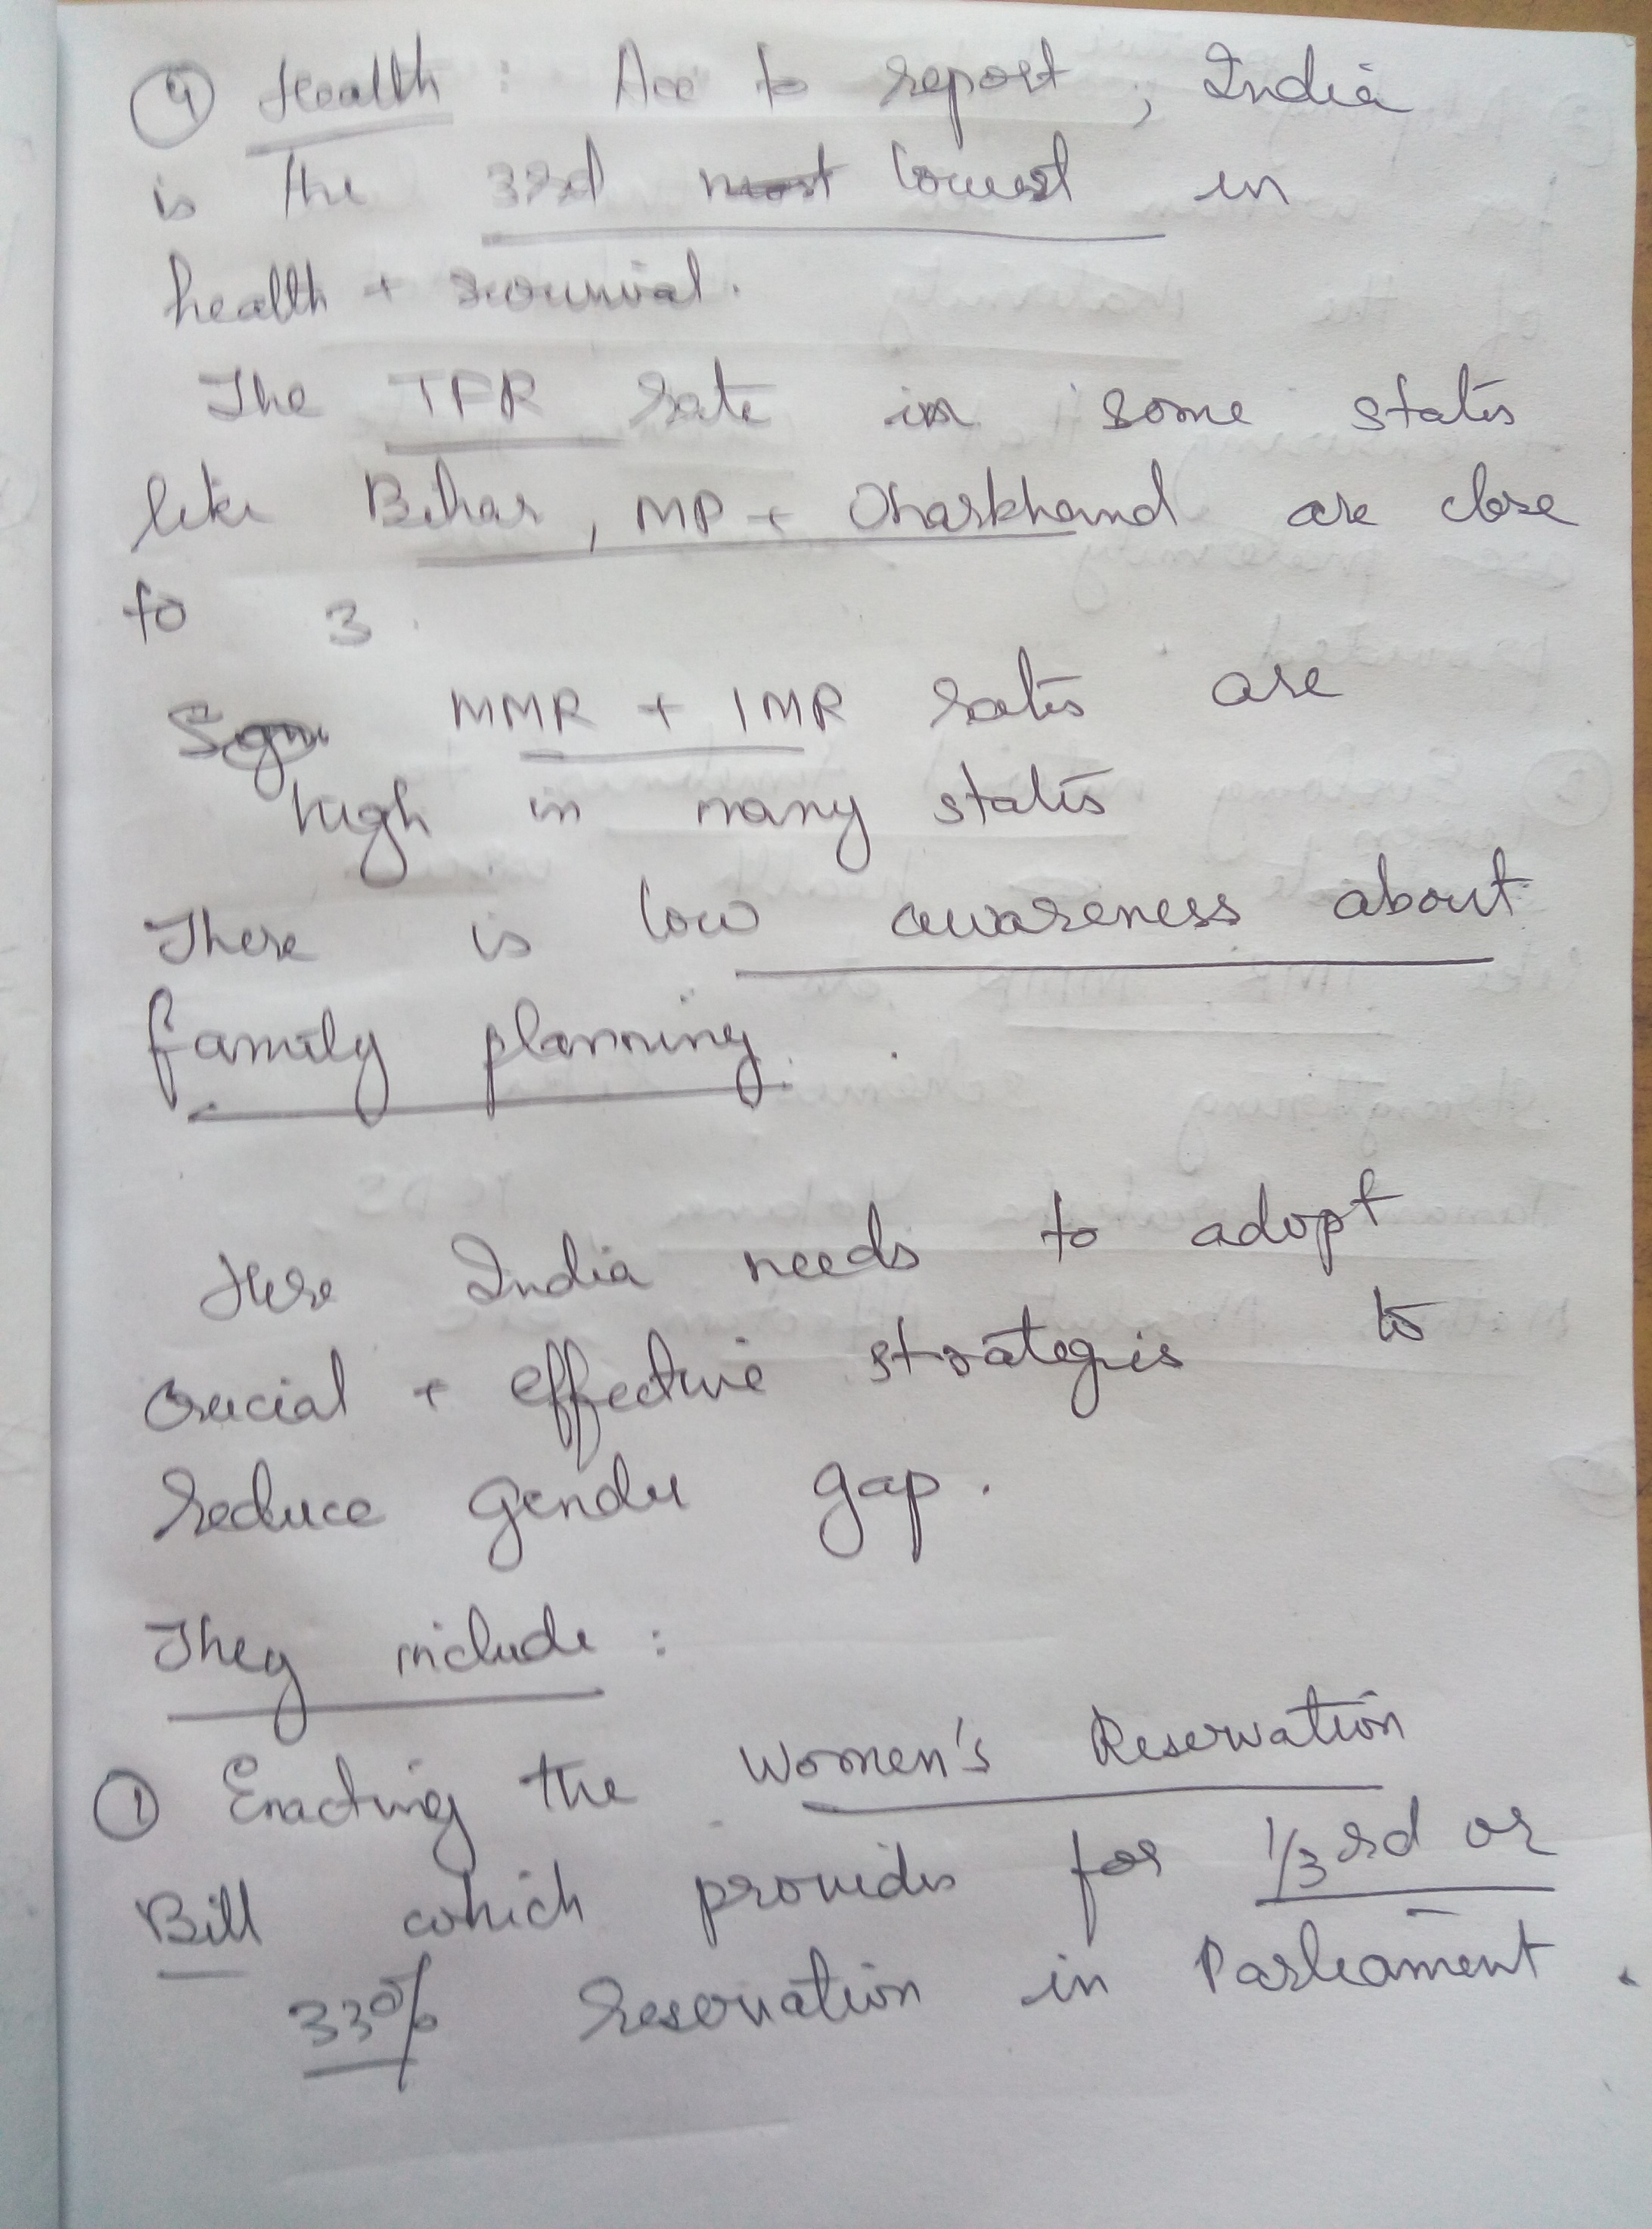 ④ Health : Acc to report, India
is the 3rd most lowest in
health + survival.
The TFR rate in some states
like Bihar, MP + Jharkhand are close
to 3.
MMR + IMR rates are
high in many states
There is low awareness about
family planning.
Here India needs to adopt
crucial + effective strategies to
reduce gender gap.
They include :
① Enacting the Women's Reservation
Bill which provides for 1/3rd or
33% reservation in Parliament.